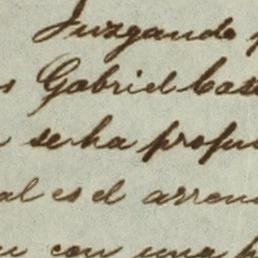 Juzgando
Gabriel Cas
se ha prop
al es el arren
con una p